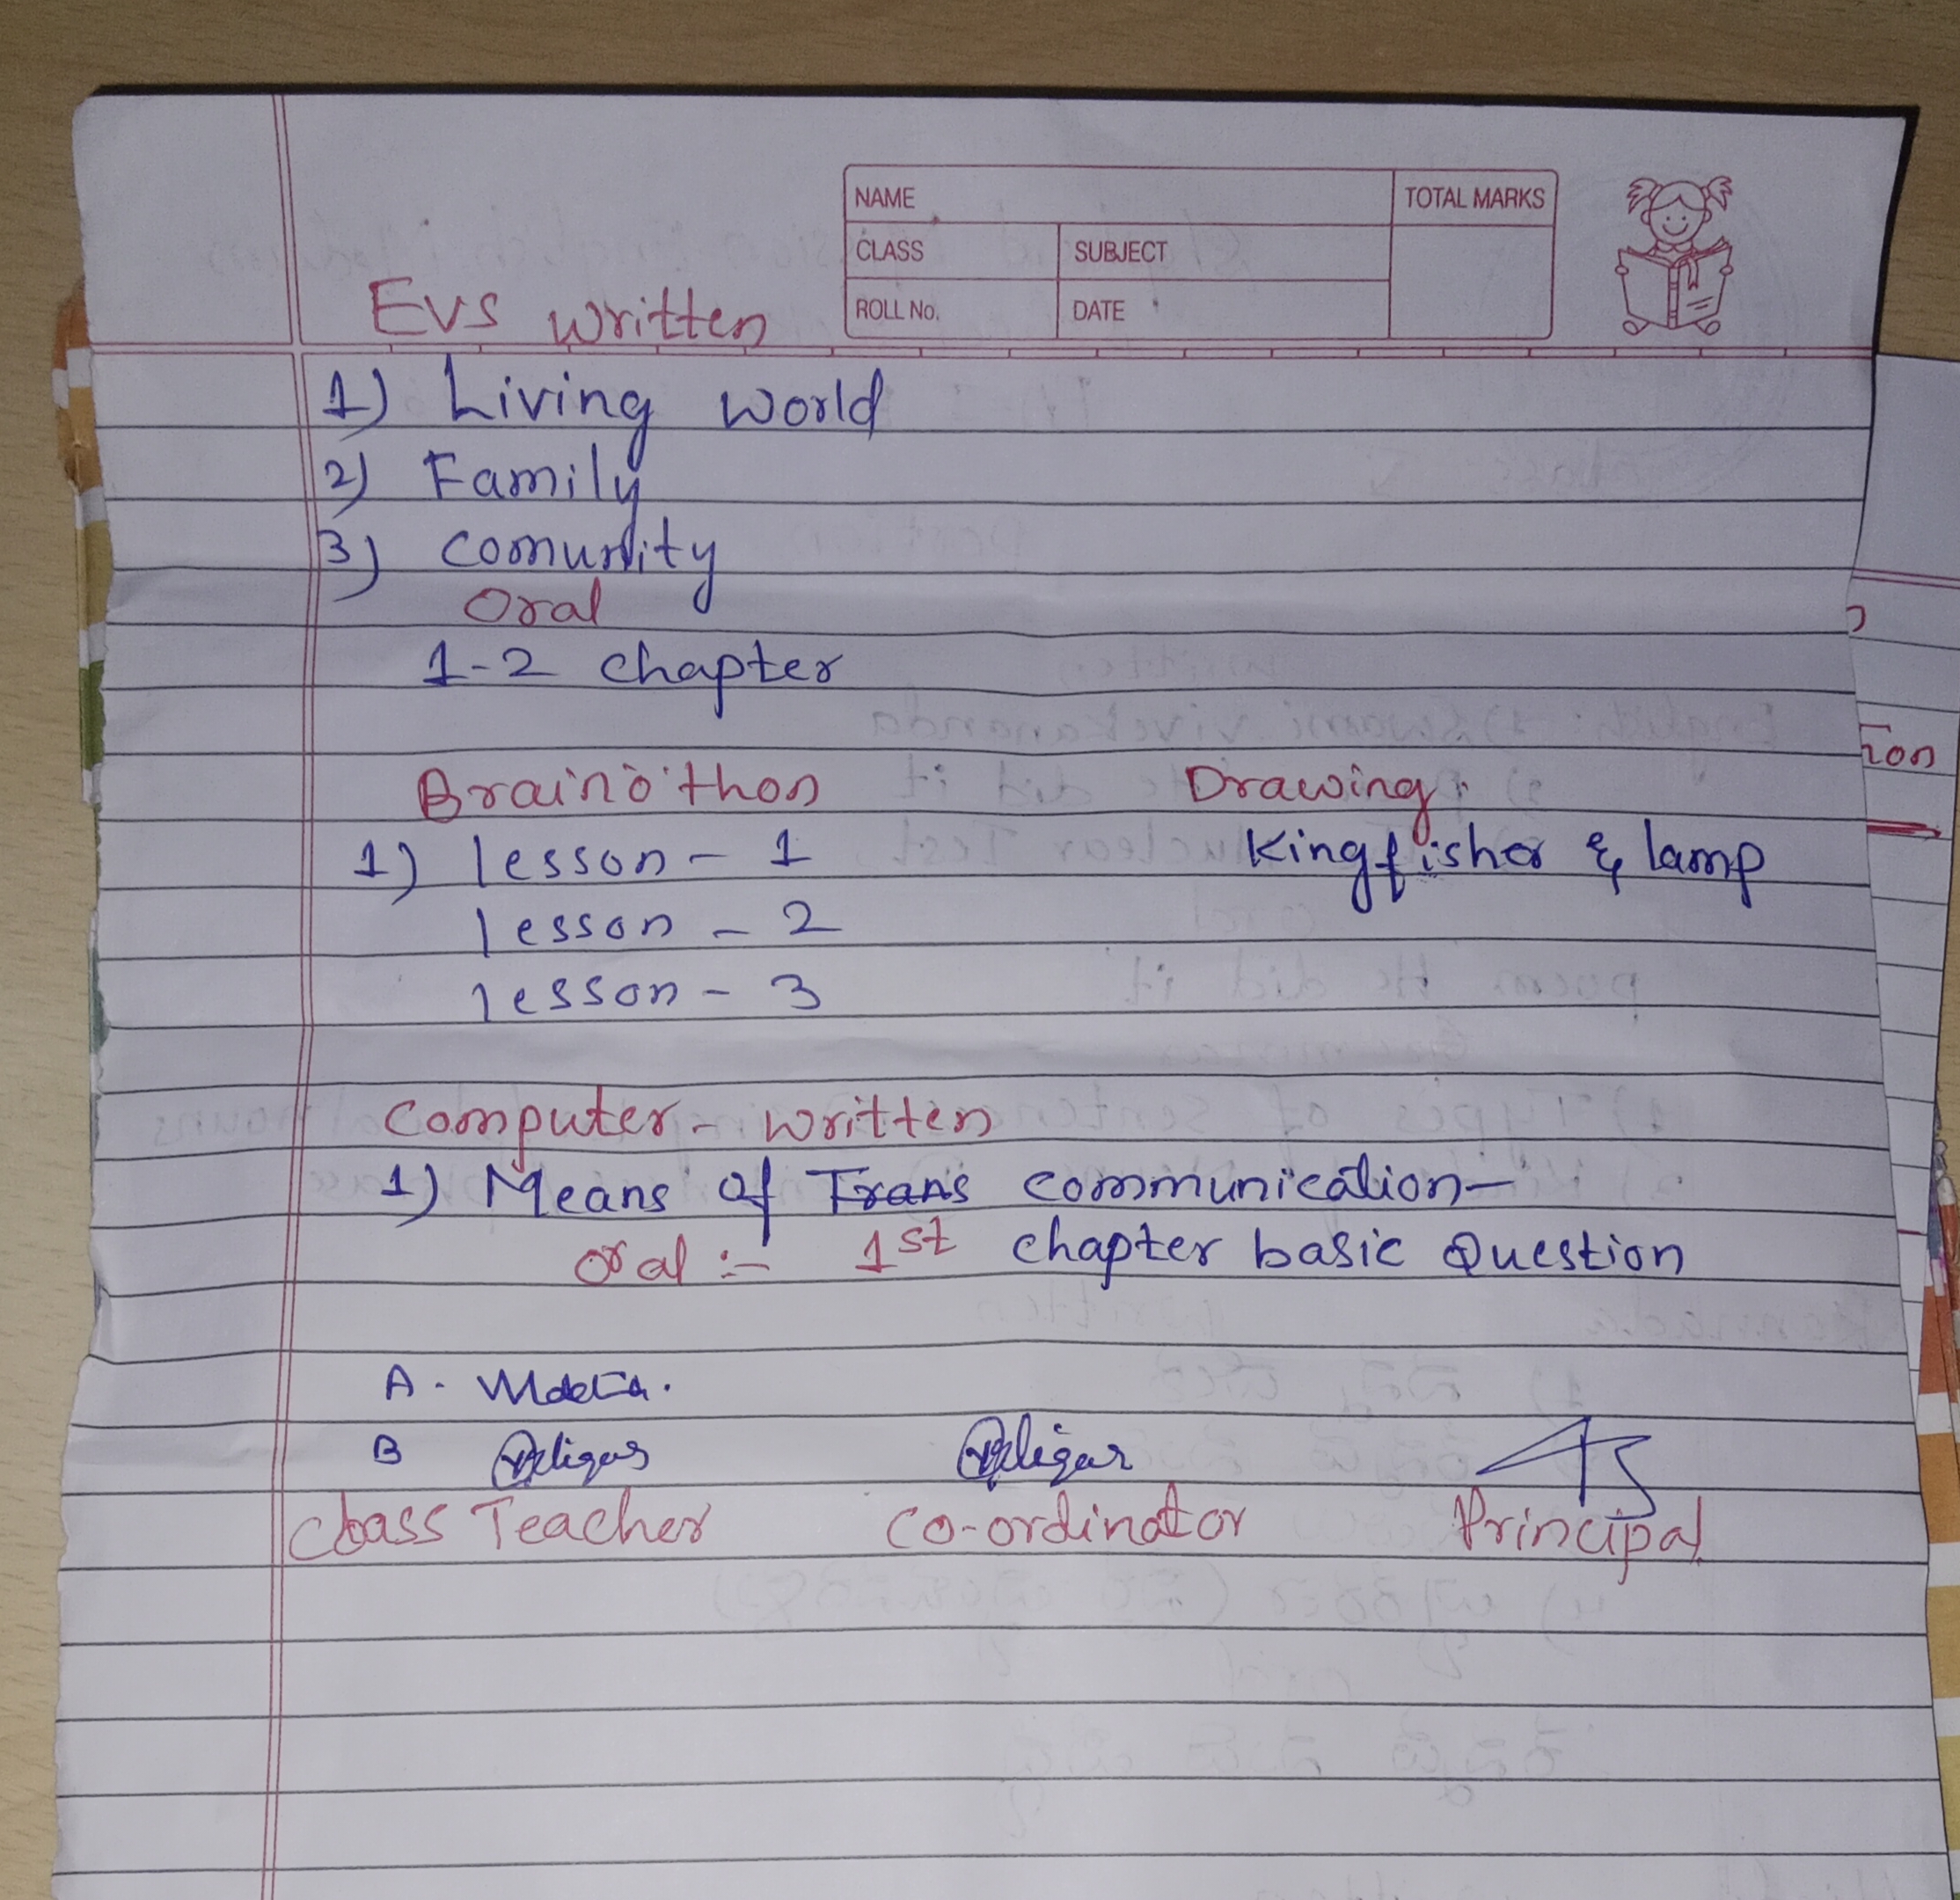 NAME
TOTAL MARKS
CLASS
SUBJECT
ROLL No.
DATE
EVS written
1) Living world
2) Family
3) comunity
Oral
1-2 chapter
Brainothon
1) lesson - 1
lesson - 2
lesson - 3
Drawing
Kingfisher & lamp
Computer - written
1) Means of Trans communication-
oral :- 1st chapter basic Question
A.
B
Class Teacher
Co-ordinator
Principal